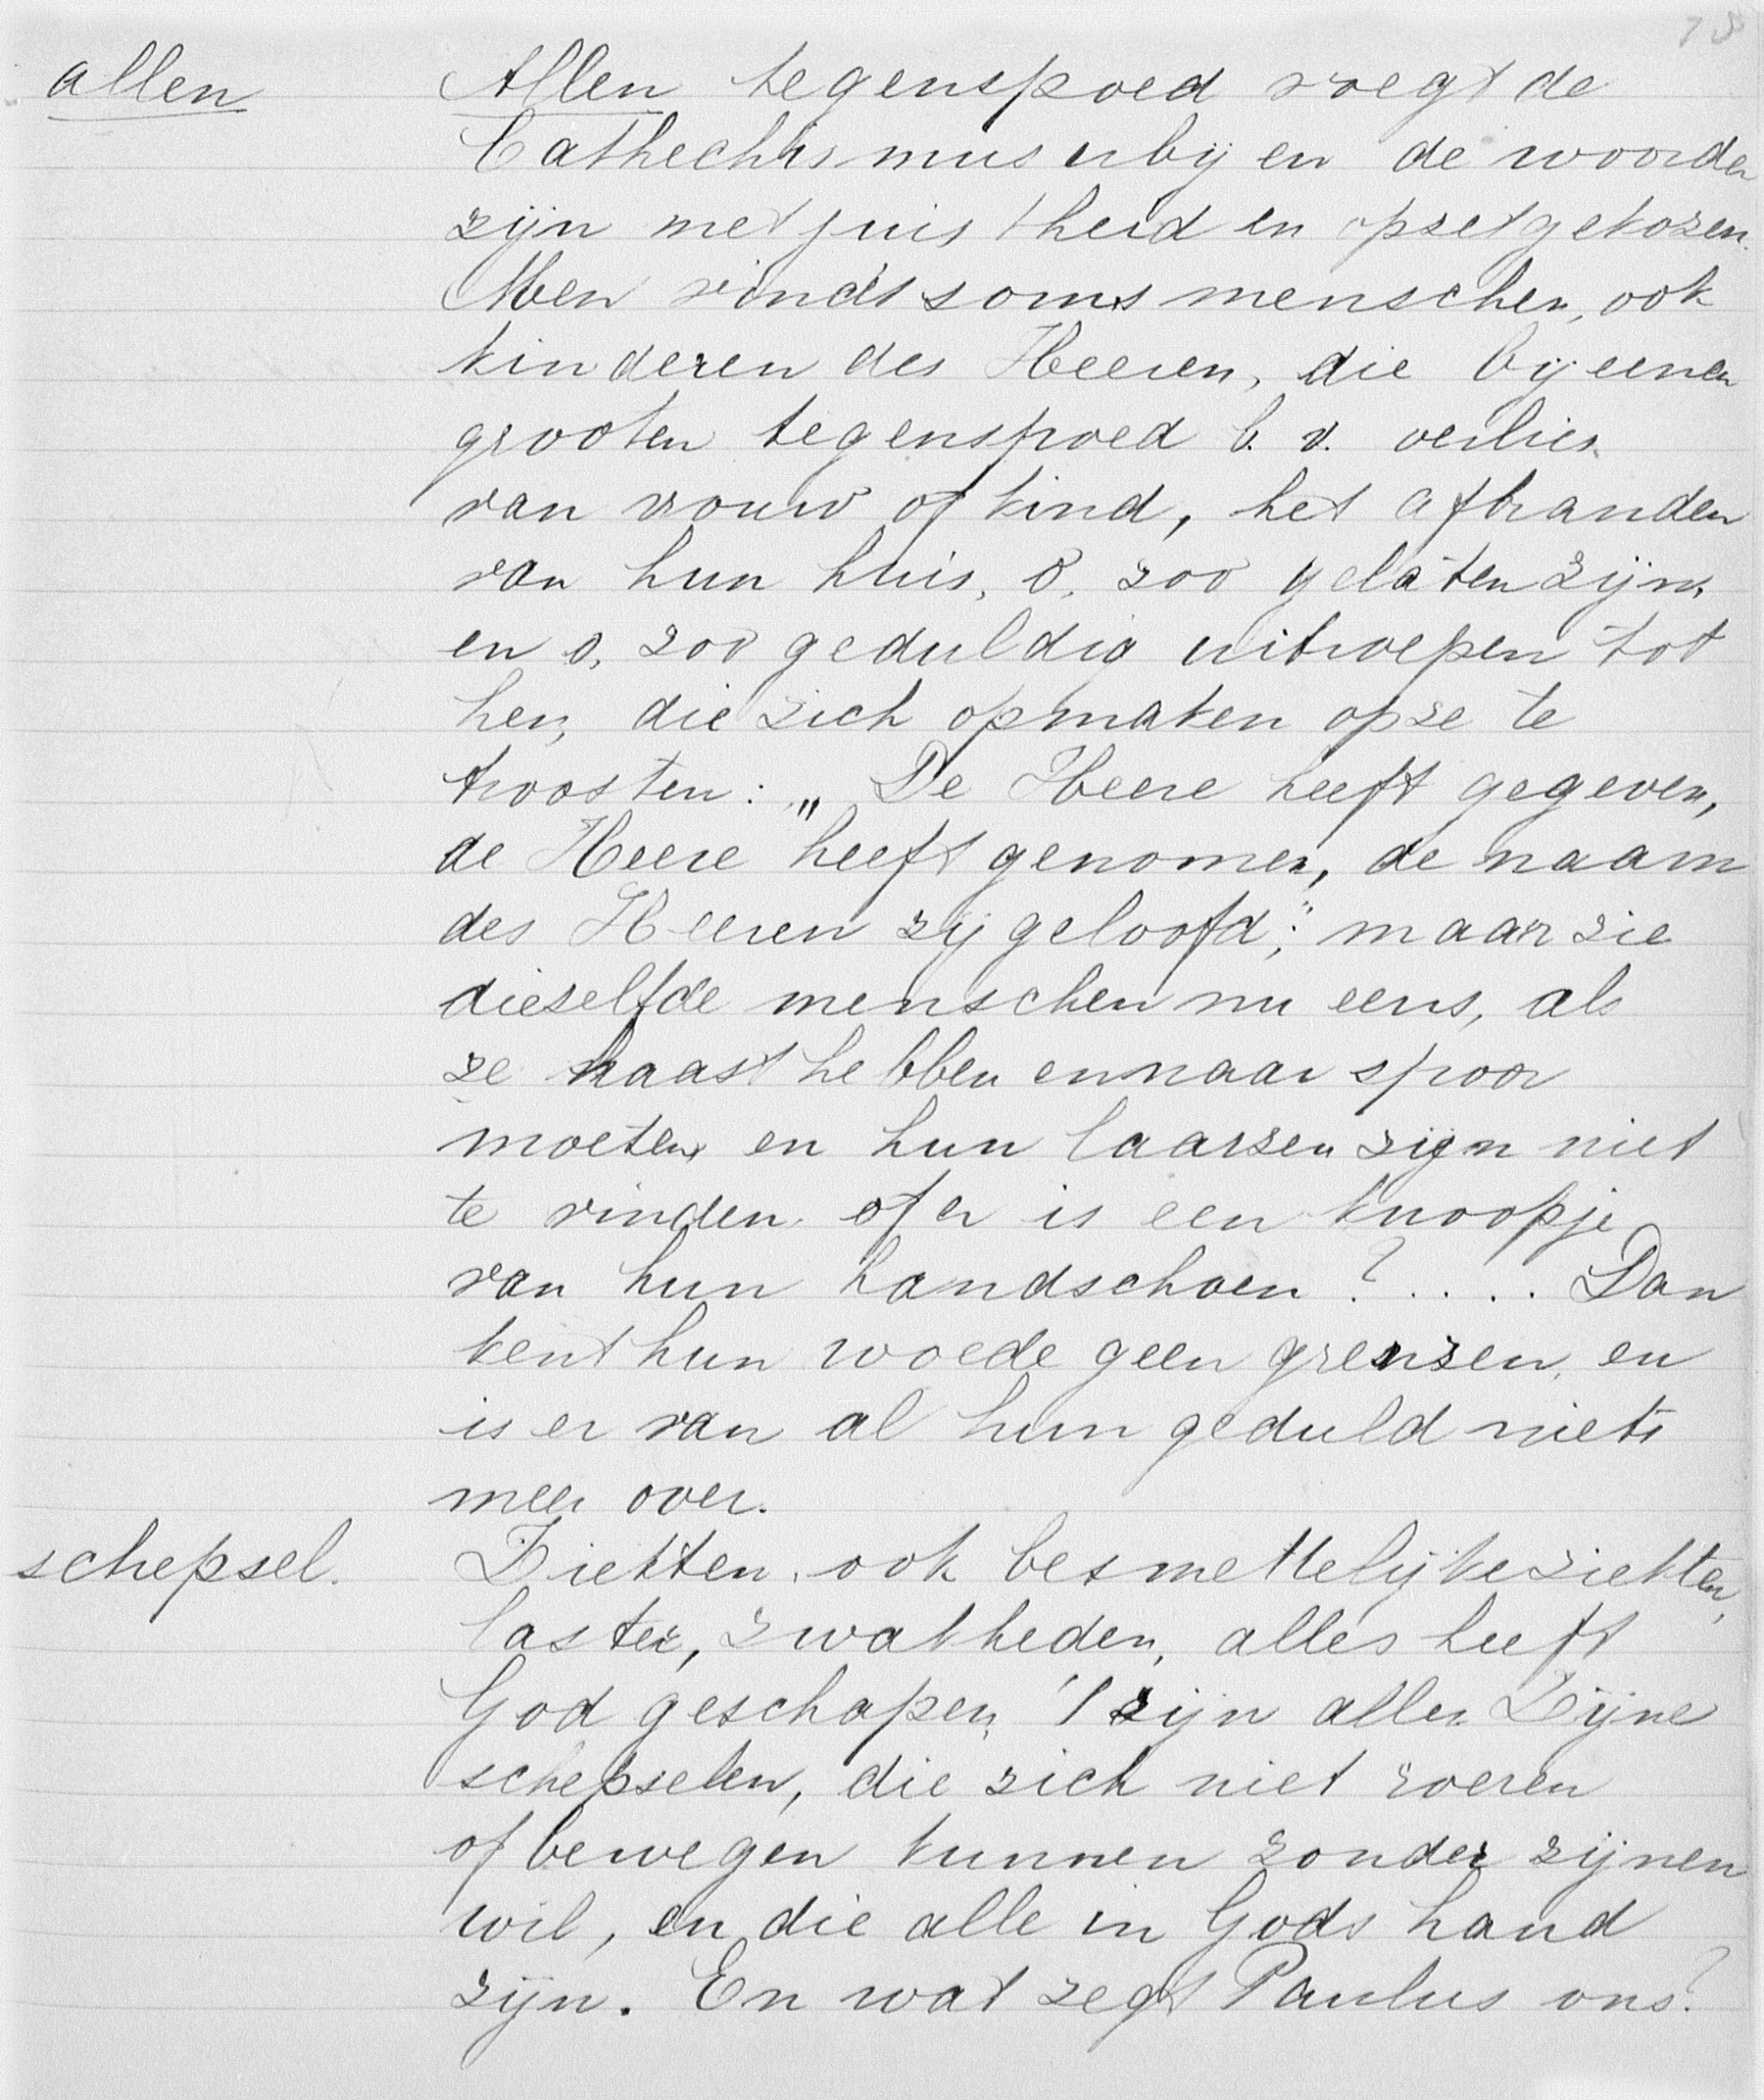 78
allen Allen tegenspoed voegt de
Cathechismus erbij en de woorden
zijn met juistheid en opzet gekozen.
Men vindt soms menschen, ook
kinderen des Heeren, die bij eenen
grooten tegenspoed b. v. verlies
van vrouw of kind, het afbranden
van hun huis, o, zoo gelaten zijn,
en o, zoo geduldig uitroepen tot
hen, die zich opmaken op ze te
troosten: „De Heere heeft gegeven,
de Heere heeft genomen, de naam
des Heeren zij geloofd;" maar zie
diezelfde menschen nu eens, als
ze haast hebben en naar spoor
moeten en hun laarzen zijn niet
te vinden of er is een knoopje
van hun handschoen ?.... Dan
kent hun woede geen grenzen, en
is er van al hun geduld niets
meer over.
schepsel. Ziekten, ook besmettelijke ziekten,
laster, zwakheden, alles heeft
God geschapen, 't zijn allen Zijne
schepselen, die zich niet roeren
of bewegen kunnen zonder zijnen
wil, en die alle in Gods hand
zijn. En wat zegt Paulus ons?